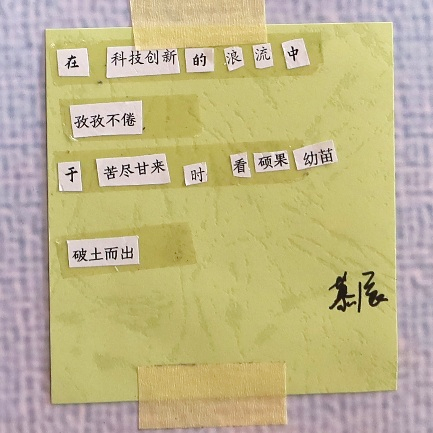 在科技创新的浪流中
孜孜不倦
于苦尽甘来时看硕果幼苗
破土而出
慕辰